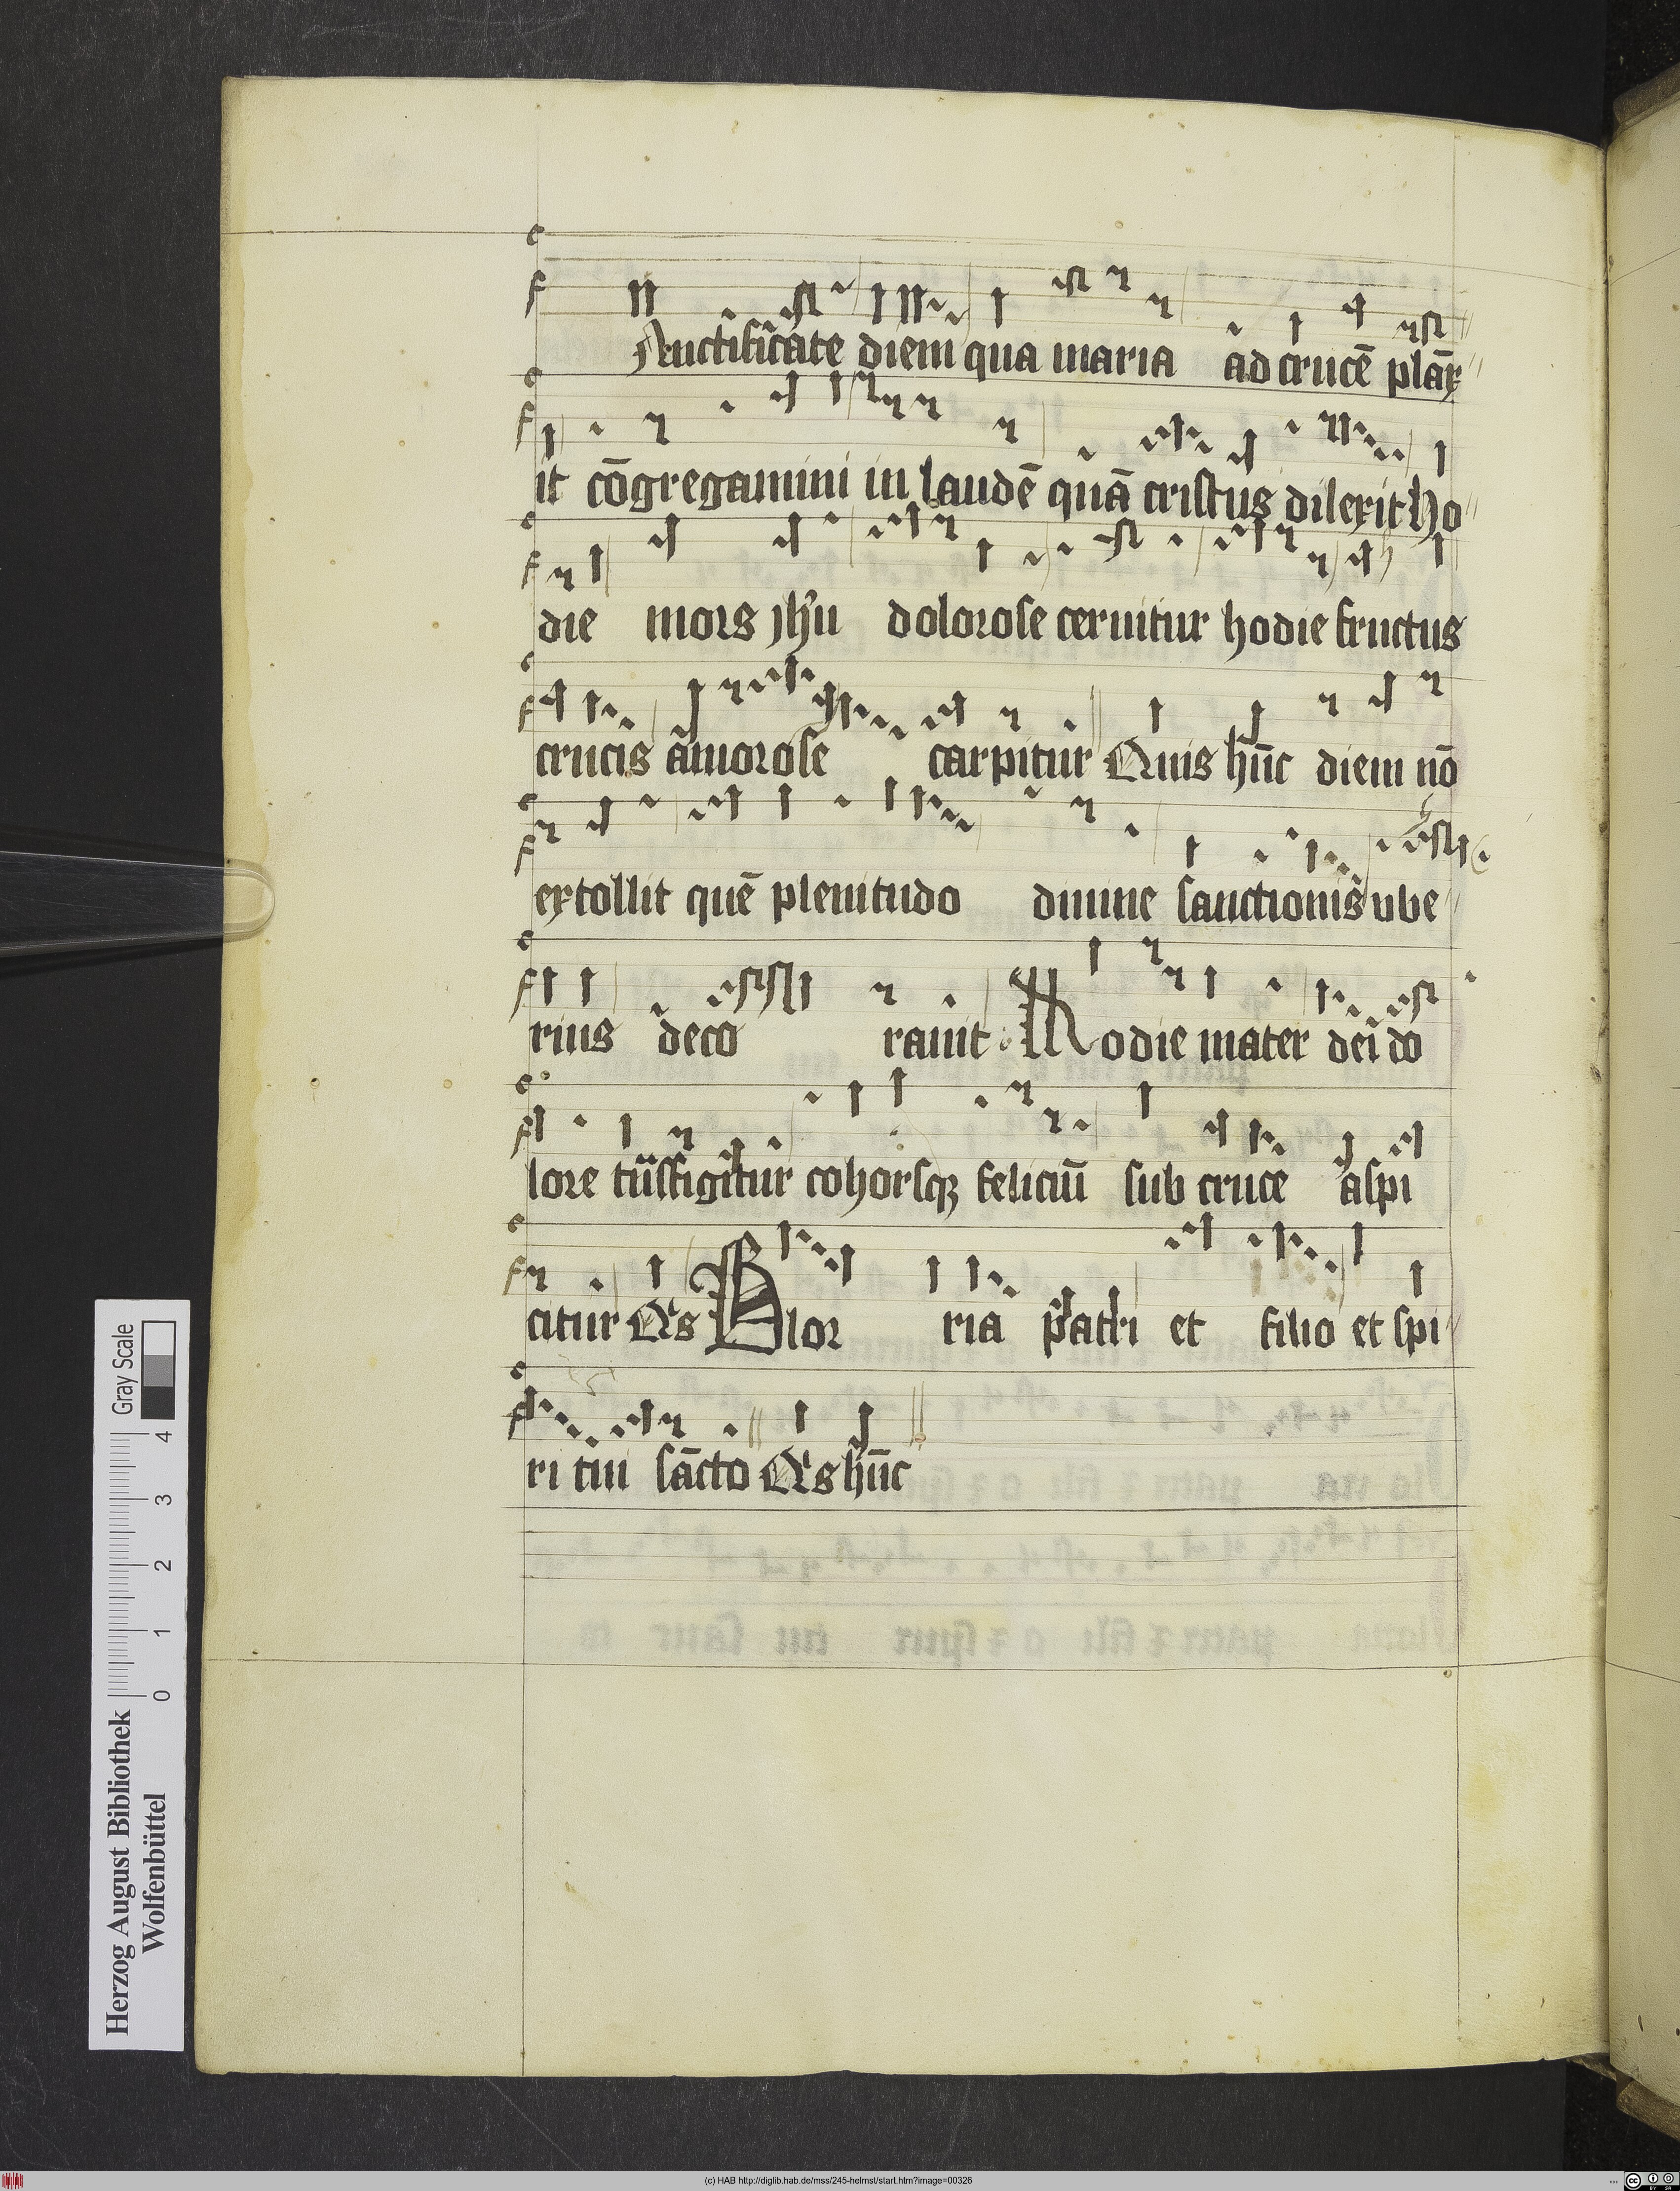 Auctificate diem qua maria ad crucē plāx
it cōgregamini in laudē quā cristus dilexit ho
die mors jhū dolorose cernitur hodie fructus
crucis amorose carpitur Quis hūc diem nō
extollit quē plenitudo diuine sanctionis vbe
rius deco rauit Hodie mater dei do
lore tūsfigitur cohorsqꝫ feliciū sub cruce aspi
citur Qͥs Glor ria patri et filio et spi
ri tui sācto Qͥs hūc
Herzog August Bibliothek
Wolfenbüttel
Gray Scale
0 1 2 3 4
(c) HAB http://diglib.hab.de/mss/245-helmst/start.htm?image=00326